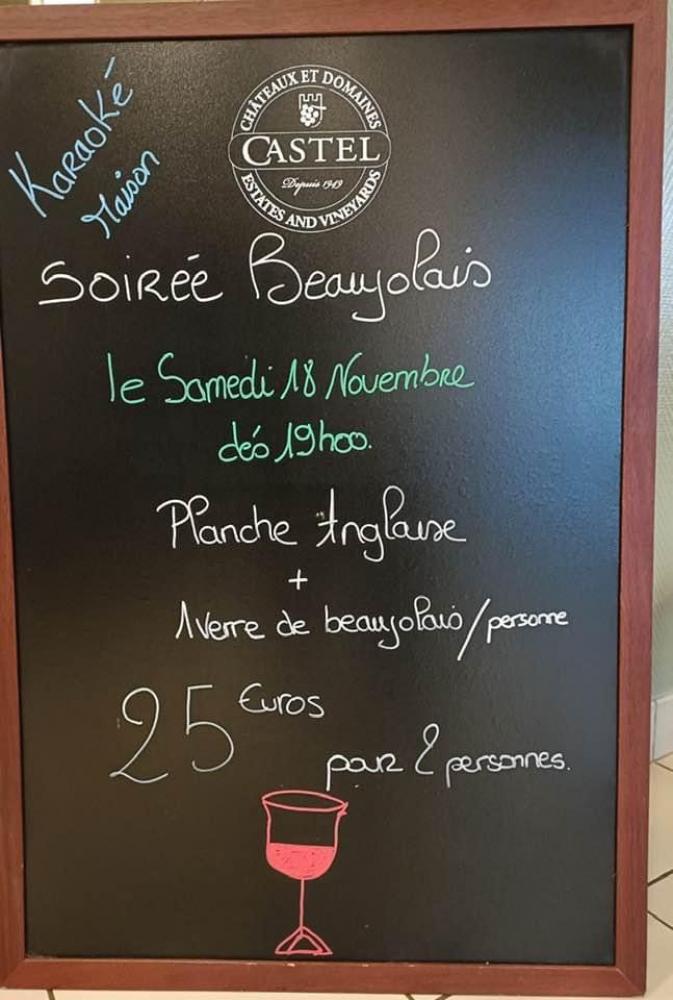 Karaoké
Maison
CHÂTEAUX ET DOMAINES
CASTEL
Depuis 1949
ESTATES AND VINEYARDS
Soirée Beaujolais
le Samedi 18 Novembre
dés 19h00.
Planche Anglaise
+
1 Verre de beaujolais / personne
25 Euros
pour 2 personnes.